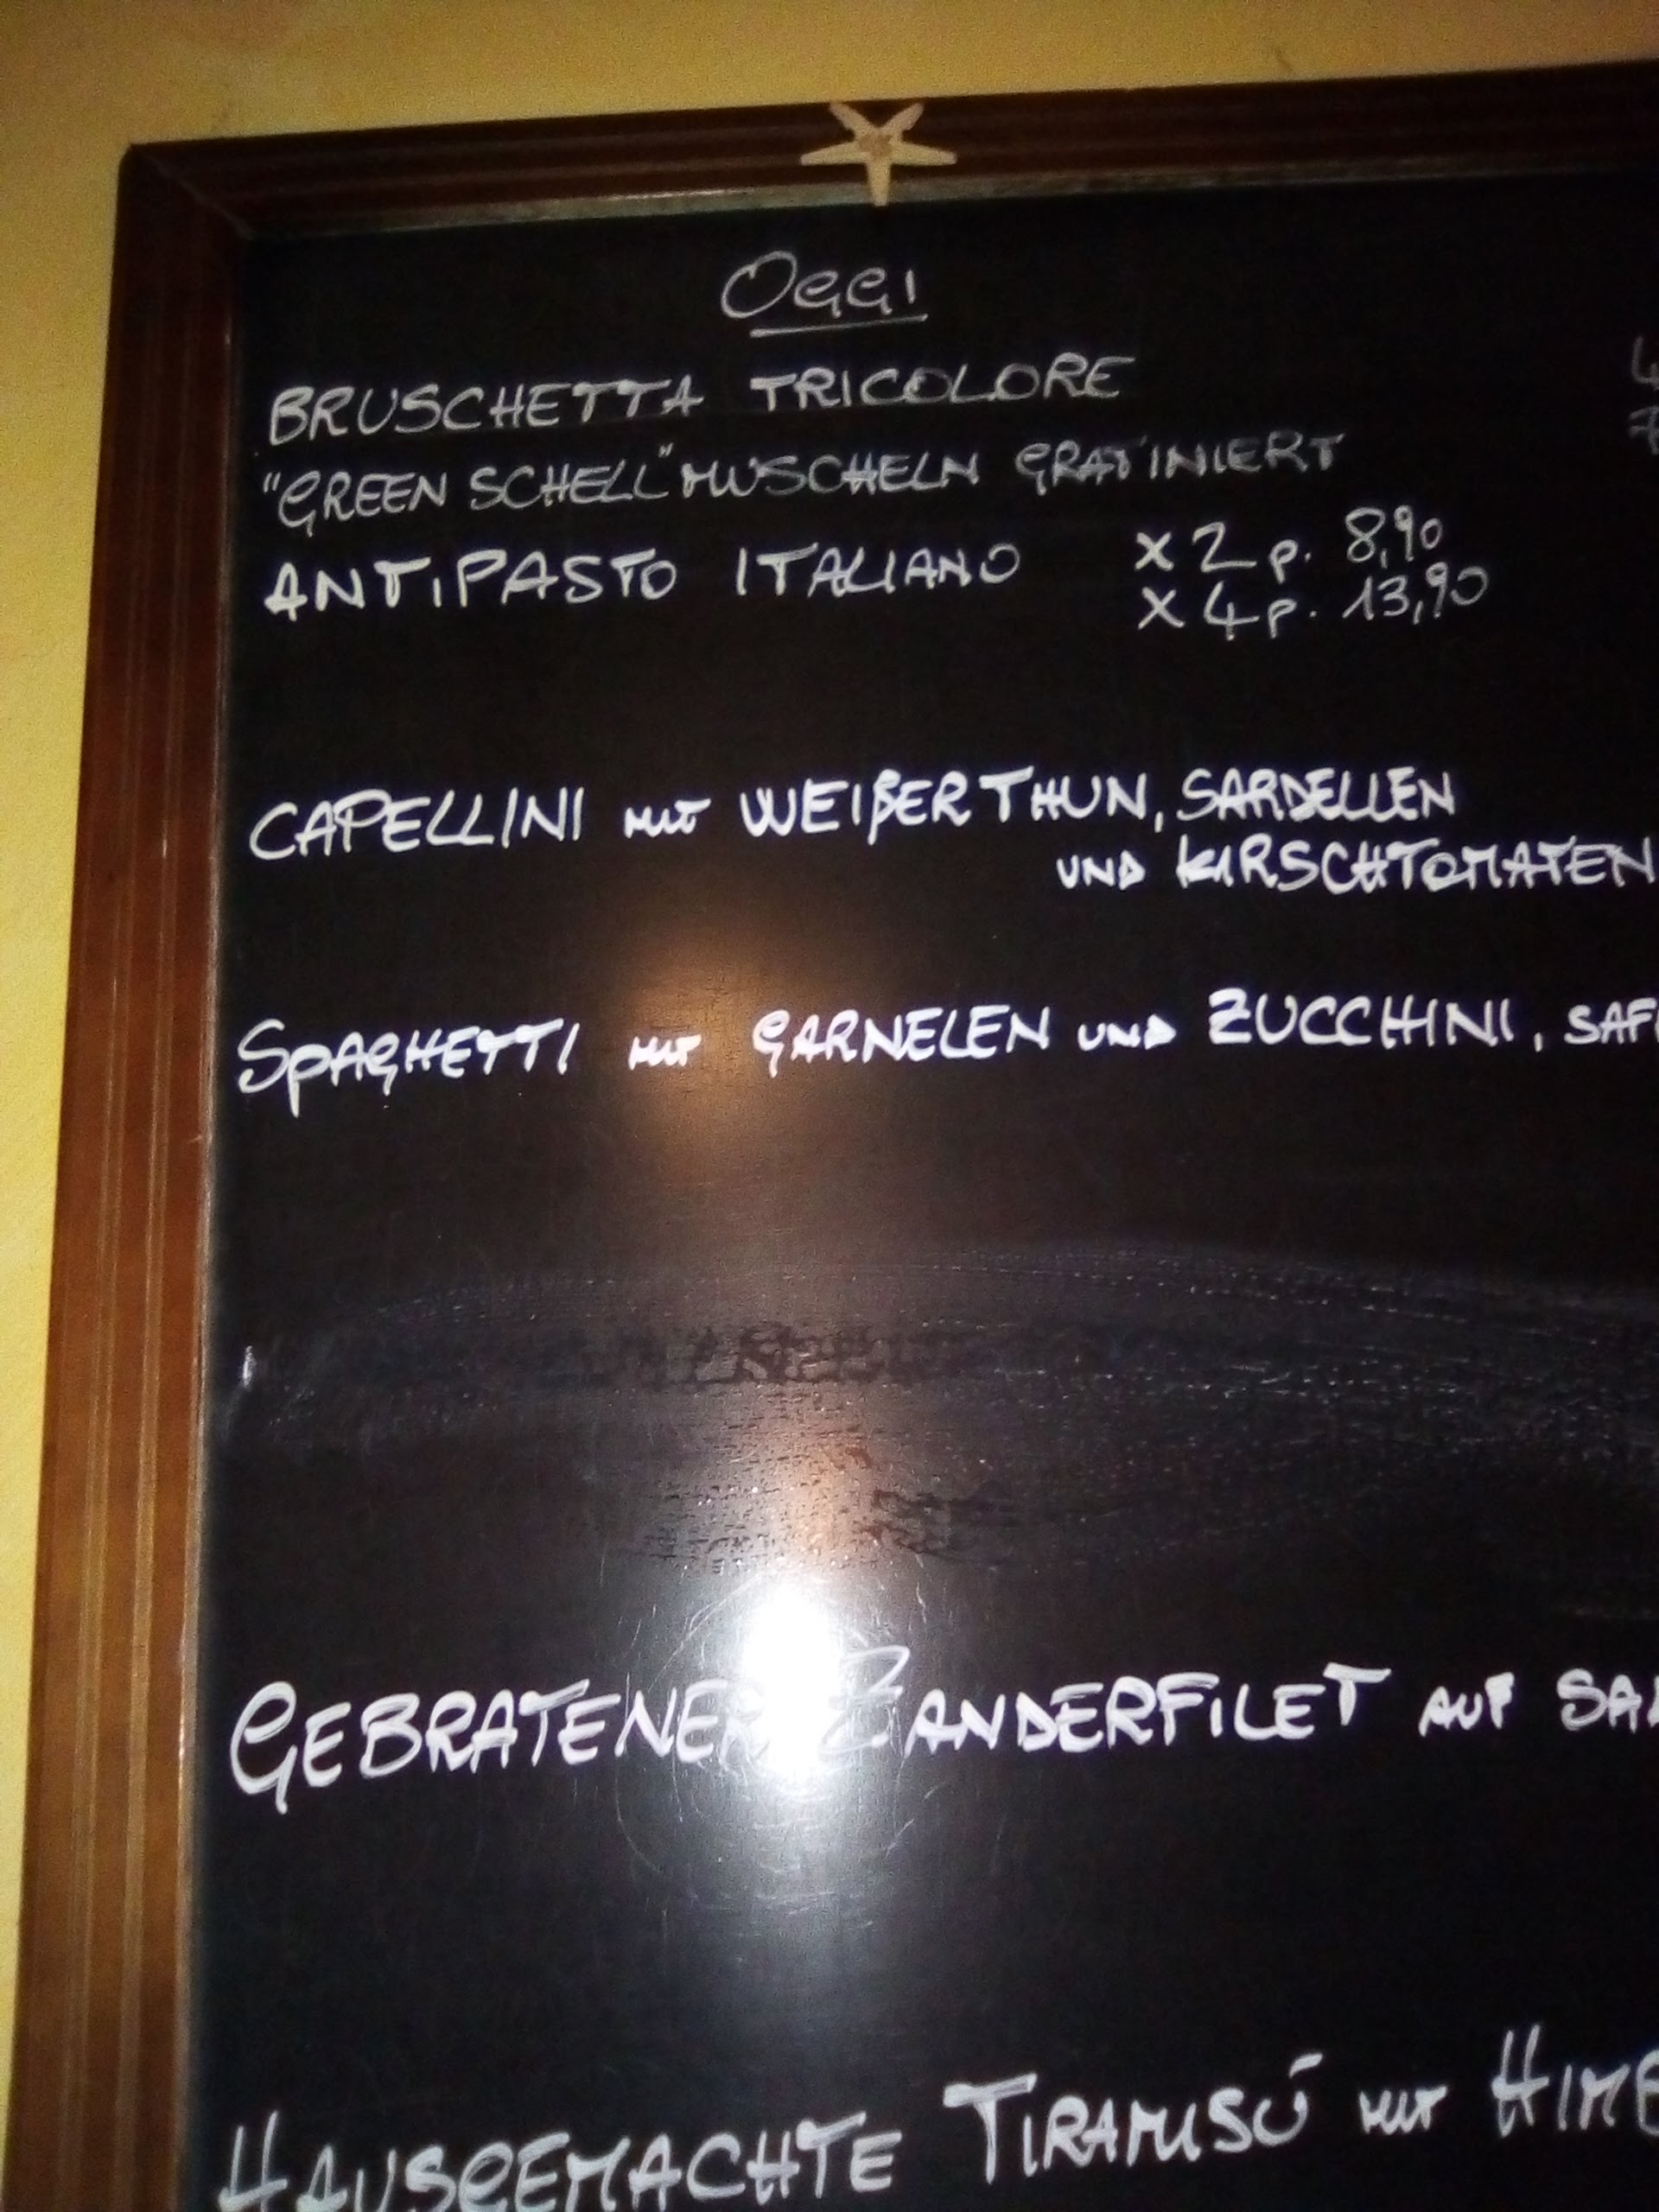 OGGI
BRUSCHETTA TRICOLORE
"GREEN SCHELL" MUSCHELN GRATINIERT
ANTIPASTO ITALIANO x 2 p. 8,90
x 4 p. 13,90
CAPELLINI MIT WEIßER THUN, SARDELLEN
UND KIRSCHTOMATEN
SPAGHETTI MIT GARNELEN UND ZUCCHINI, SAF
GEBRATENER ZANDERFILET AUF SA
HAUSGEMACHTE TIRAMISÚ MIT HIM